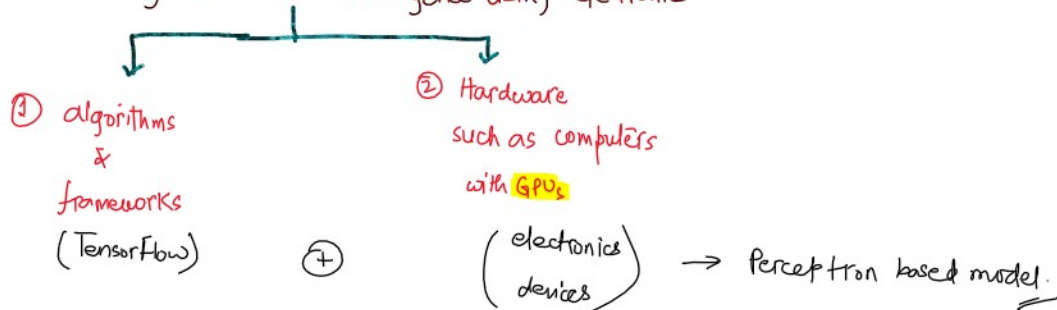 using
① algorithms
&
frameworks
(TensorFlow)
+
② Hardware
such as computers
with GPUs
(electronics
devices)
→ Perceptron based model.